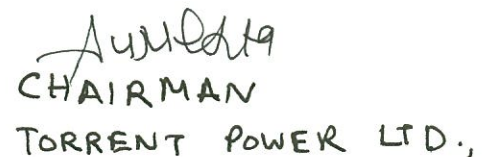 CHAIRMAN
TORRENT POWER LTD.,